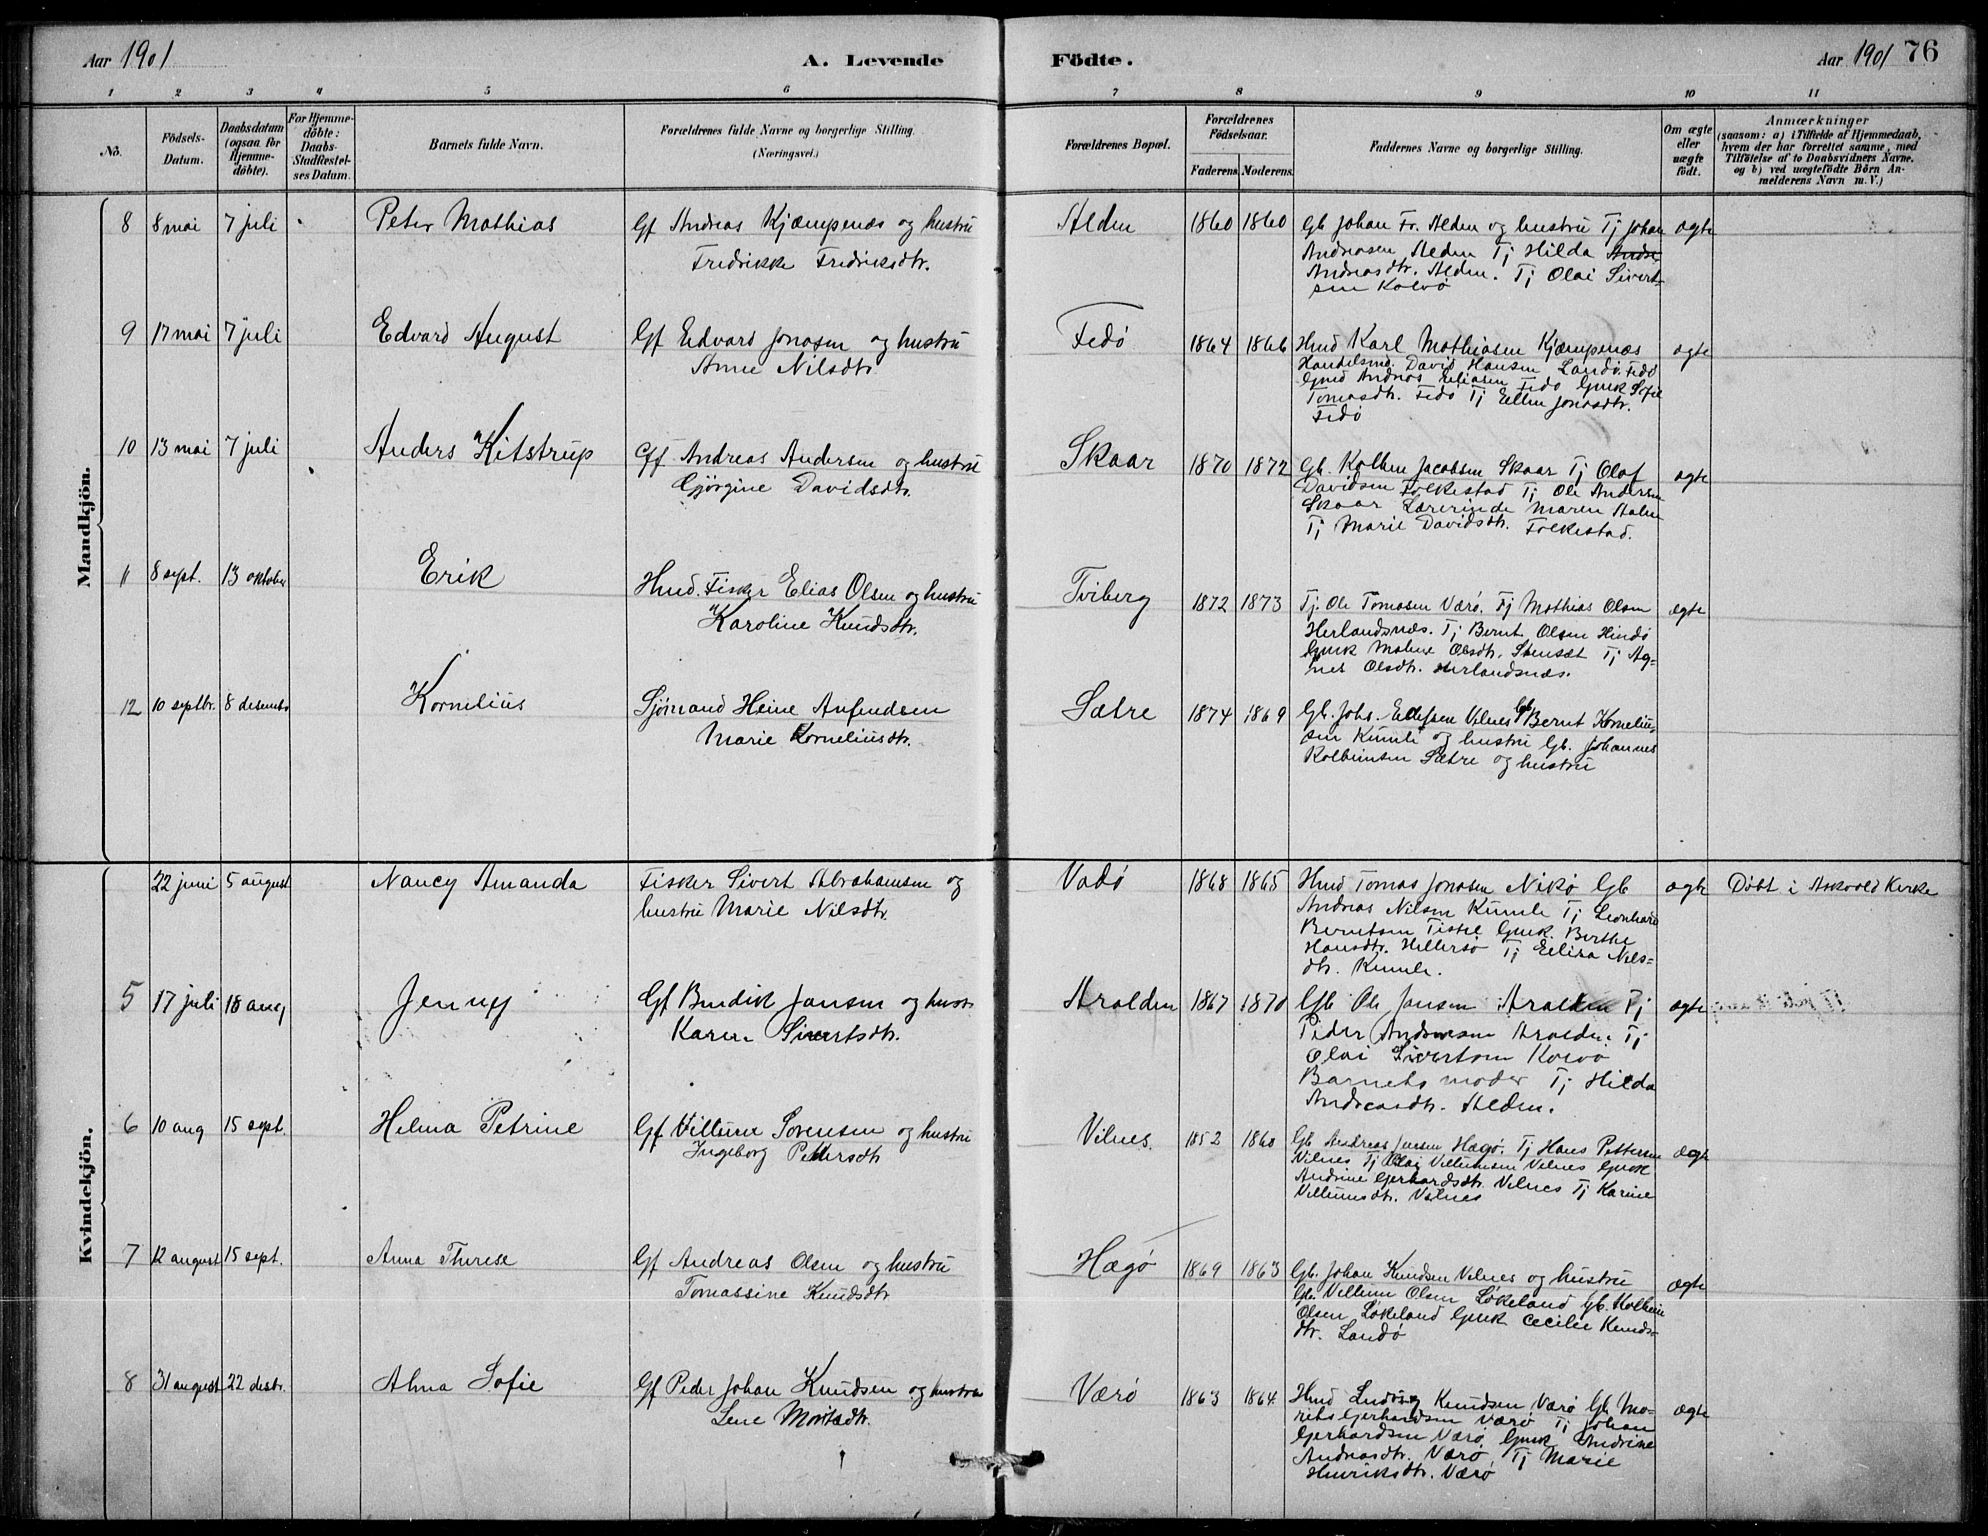 Aar 1901
A. Levende
Födte.
Aar 1901 76
1 2 3 4 5 6 7 8 9 10 11
No.
Födsels-
Datum.
Daabsdatum
(ogsaa for
Hjemme-
döbte).
For Hjemme-
döbte:
Daabs-
Stadfæstel-
ses Datum.
Barnets fulde Navn.
Forældrenes fulde Navne og borgerlige Stilling.
(Næringsvei.)
Forældrenes Bopæl.
Forældrenes
Födselsaar.
Faderens. Moderens.
Faddernes Navne og borgerlige Stilling.
Om ægte
eller
uægte
født.
Anmærkninger
(saasom: a) i Tilfælde af Hjemmedaab,
hvem der har forrettet samme, med
Tilföielse af to Daabsvidners Navne,
og b) ved uægtefödte Börn An-
melderens Navn m. V.)
Mandkjön.
8 8 mai 7 juli Peter Mathias Gf Andreas Kjæmpenæs og hustru
Fredrikke Fredriksdtr.
Alden 1860 1860 Gb Johan Fr. Alden og hustru Tj Johan ægte
Andreasen Alden Tj Hilda Andre
Andreasdtr. Alden. Tj Olai Sivert-
sen Kolvø
9 17 mai 7 juli Edvard August Gf Edvard Jonasen og hustru
Anne Nilsdtr
Fedø 1864 1866 Hmd Karl Mathiasen Kjæmpenæs ægte
Handelsmd. David Hansen Landø. Fedø
Gmd Andreas Eliasen Fedø Gmk Sofie
Tomasdtr. Fedø Tj Ellen Jonasdtr.
Fedø
10 13 mai 7 juli Anders Kitstrup Gff Andreas Andersen og hustru
Gjørgine Davidsdtr.
Skaar 1870 1872 Gb. Kolben Jacobsen Skaar Tj Olaf ægte
Davidsen Folkestad Tj Ole Andersen
Skaar Lærerinde Maren Aalen
Tj Marie Davidsdtr. Folkestad.
11 8 sept. 13 oktober Erik Hmd. Fisker Elias Olsen og hustru
Karoline Knudsdtr.
Tviberg 1872 1873 Tj. Ole Tomasen Værø. Tj Mathias Olsen ægte
Herlandsnæs. Tj Bernt Olsen Hindø
Gmk Malene Olsdtr. Stensæt Tj Ag-
nes Olsdtr. Herlandsnæs.
12 10 septbr. 8 desember Kornelius Sjømand Heine Anfindsen
Marie Korneliusdtr.
Sætre 1874 1869 Gb. Johs. Ellefsen Vilnes Gb. Bernt Kornelius-
sen Kumle og hustru Gb. Johannes
Kolbeinsen Sætre og hustru
Kvindekjön.
22 juni 5 august Nancy Amanda Fisker Sivert Abrahamsen og
hustru Marie Nilsdtr.
Vadø 1868 1865 Hmd Tomas Jonasen Nikø Gb ægte Døbt i Askvold Kirke
Andreas Nilsen Kumle Tj Leonhard
Berntsen Tistel Gmk. Berthe
Hansdtr. Hellersø Tj Elisa Nils-
dtr. Kumle.
5 17 juli 18 aug Jenny Gf Bendik Jansen og hustr.
Karen Sivertsdtr.
Aralden 1867 1870 Gb Ole Jansen Aralden Tj ægte
Peder Andersen Aralden. Tj
Olai Sivertsen Kolvø
Barnets moder Tj Hilda
Andreasdtr. Alden.
6 10 aug 15 sept. Helma Petrine Gf Villum Sørensen og hustru
Ingeborg Pettersdtr
Vilnes. 1852 1860 Gb Andreas Jensen Hægø. Tj Hans Pettersen ægte
Vilnes Tj Olai Villumsen Vilnes Gmk
Andrine Gerhardsdtr. Vilnes Tj Karine
Villumsdtr. Vilnes
7 12 august 15 sept. Anna Therese Gf Andreas Olsen og hustru
Tomassine Knudsdtr
Hægø 1869 1863 Gb. Johan Knudsen Vilnes og hustru ægte
Gb. Villum Olsen Løkeland Gb. Kolbein
Olsen Løkeland Gmk Cecilie Knuds-
dtr. Landø
8 31 august 22 desbr. Alma Sofie Gf Peder Johan Knudsen og hustru
Lene Moritsdtr.
Værø 1863 1864 Hmd Ludvig Knudsen Værø Gb Mo- ægte
rits Gerhardsen Værø Tj Johan
Gerhardsen Værø Gmk Andrine
Andreasdtr. Værø Tj Marie
Henriksdtr. Værø